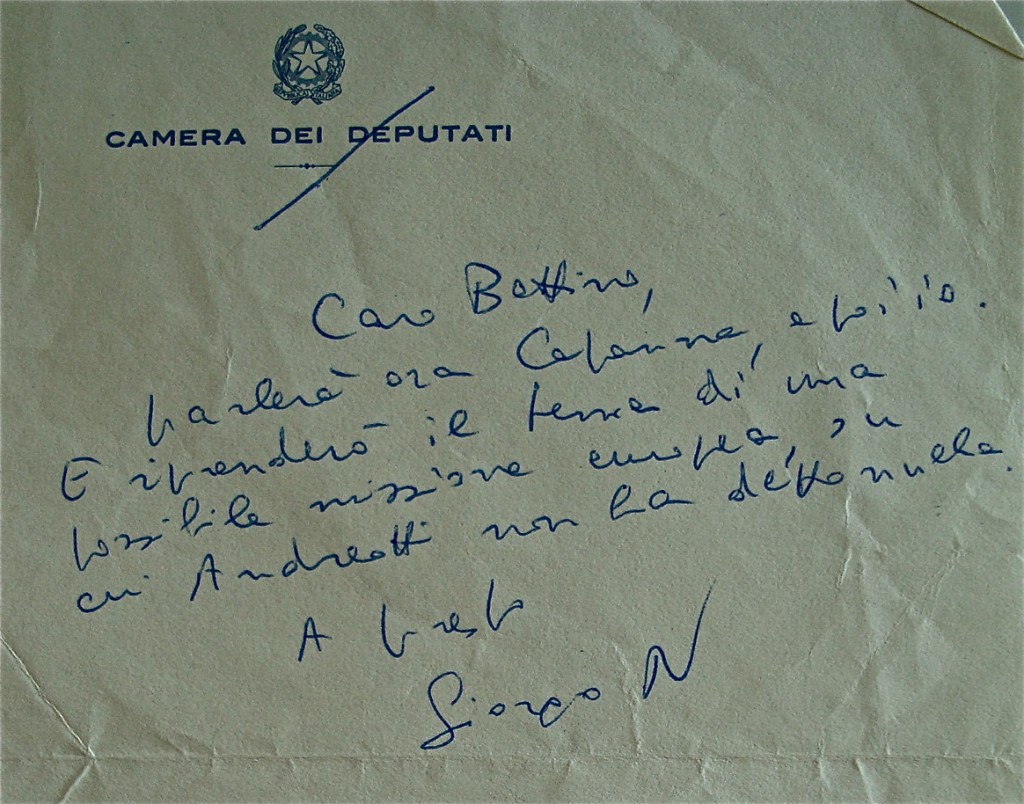 REPVBBLICA ITALIANA
CAMERA DEI DEPUTATI
Caro Bettino,
parlerà ora Capanna, e poi io.
E riprenderò il tema di una
possibile missione europea, su
cui Andreotti non ha detto nulla.
A presto
Giorgio N